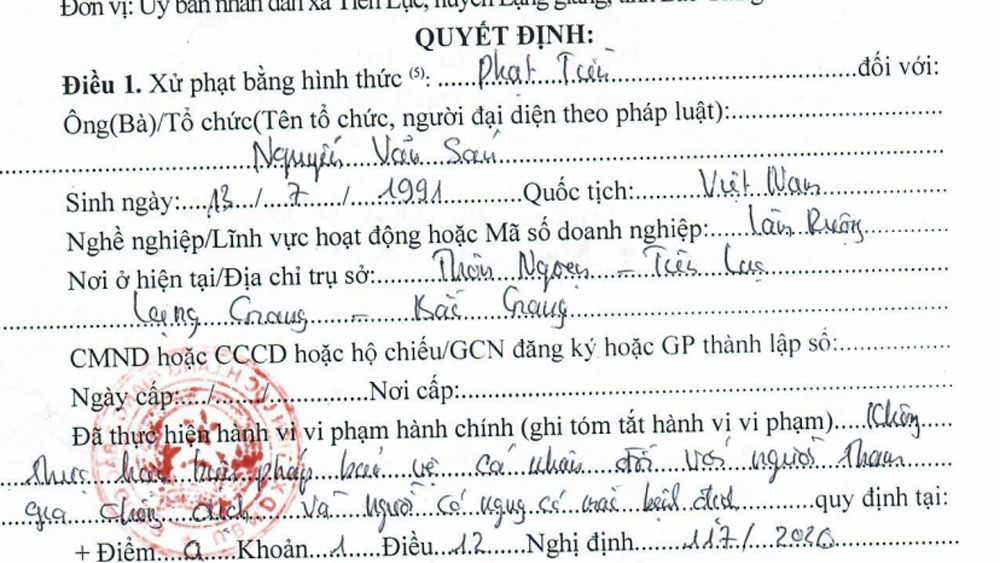 Đơn vị: Ủy ban nhân dân xã Tiên Lục, huyện Lạng giang, tỉnh Bắc Giang
QUYẾT ĐỊNH:
Điều 1. Xử phạt bằng hình thức (5): Phạt Tiền đối với:
Ông(Bà)/Tổ chức(Tên tổ chức, người đại diện theo pháp luật):
Nguyễn Văn Sáu
Sinh ngày: 13 / 7 / 1991 Quốc tịch: Việt Nam
Nghề nghiệp/Lĩnh vực hoạt động hoặc Mã số doanh nghiệp: Làm Ruộng
Nơi ở hiện tại/Địa chỉ trụ sở: Thôn Ngoẹn – Tiên Lục
Lạng Giang – Bắc Giang
CMND hoặc CCCD hoặc hộ chiếu/GCN đăng ký hoặc GP thành lập số:
Ngày cấp: / / Nơi cấp:
Đã thực hiện hành vi vi phạm hành chính (ghi tóm tắt hành vi vi phạm) Không
thực hiện biện pháp bảo vệ cá nhân đối với người tham
gia chống dịch và người có nguy cơ mắc bệnh dịch quy định tại:
+ Điểm a Khoản 1 Điều 12 Nghị định 117/2020